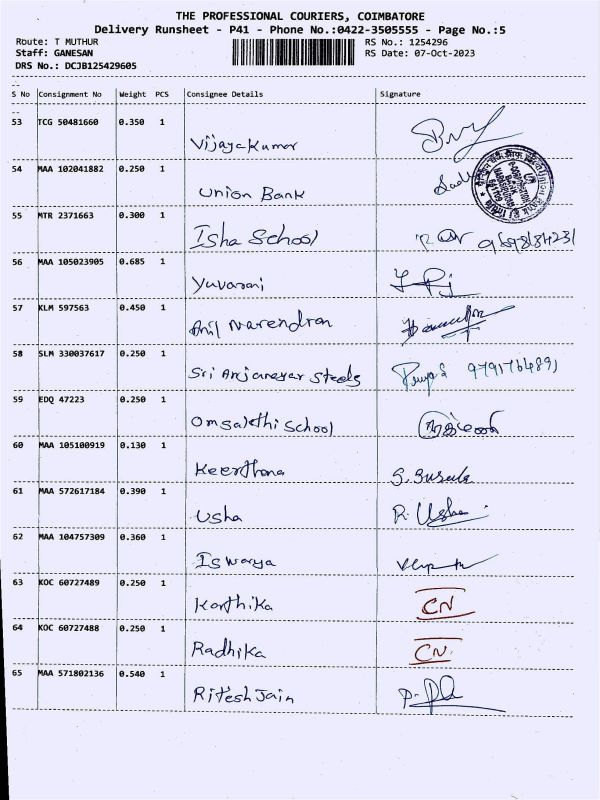 THE PROFESSIONAL COURIERS, COIMBATORE
Delivery Runsheet - P41 - Phone No.:0422-3505555 - Page No.:5
Route: T MUTHUR RS No.: 1254296
Staff: GANESAN RS Date: 07-Oct-2023
DRS No.: DCJB125429605
S No Consignment No Weight PCS Consignee Details Signature
53 TCG 50481660 0.350 1
Vijayakumar
54 MAA 102041882 0.250 1
Union Bank
55 MTR 2371663 0.300 1
Isha School
56 MAA 105023905 0.685 1
Yuvarani
57 KLM 597563 0.450 1
Anil Narendran
58 SLM 330037617 0.250 1
Sri Anjaneyar Steels 9791764891
59 EDQ 47223 0.250 1
Omsakthi School
60 MAA 105100919 0.130 1
Keerthana
61 MAA 572617184 0.390 1
Usha R. Usha
62 MAA 104757309 0.360 1
Iswarya
63 KOC 60727489 0.250 1
Karthika CN
64 KOC 60727488 0.250 1
Radhika CN
65 MAA 571802136 0.540 1
Ritesh Jain